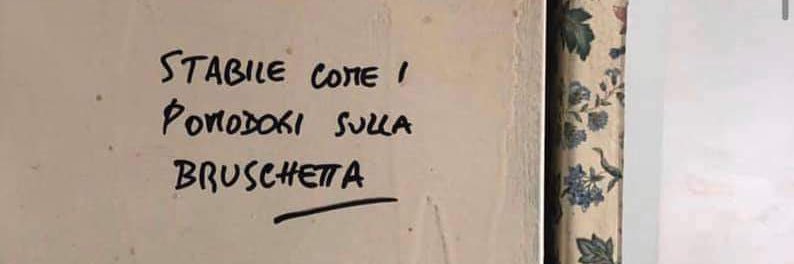 STABILE COME I
POMODORI SULLA
BRUSCHETTA